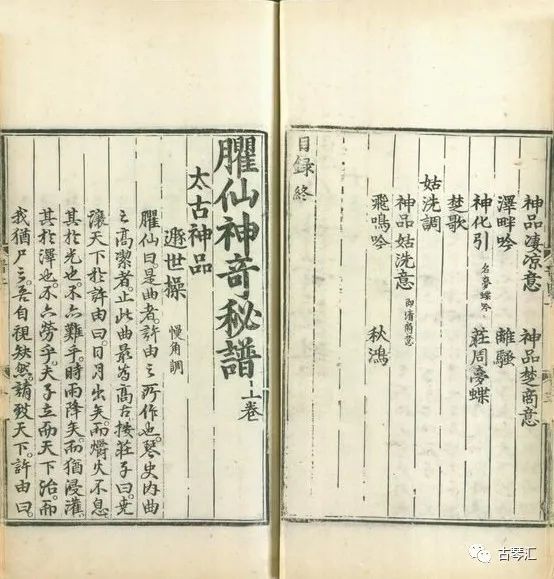 神品凄凉意 神品楚商意
澤畔吟 離騷
神化引 名夢蝶吟 莊周夢蝶
楚歌
姑洗調
神品姑洗意
飛鳴吟 秋鴻
目録終
臞仙神奇秘譜上卷
太古神品
遯世操 慢角調
臞仙曰是曲者許由之所作也琴史内曲
之高潔者止此曲最為高古按莊子曰堯
讓天下於許由曰日月出矣而爝火不息
其於光也不亦難乎時雨降矣而猶浸灌
其於澤也不亦勞乎夫子立而天下治而
我猶尸之吾自視缺然請致天下許由曰
古琴汇